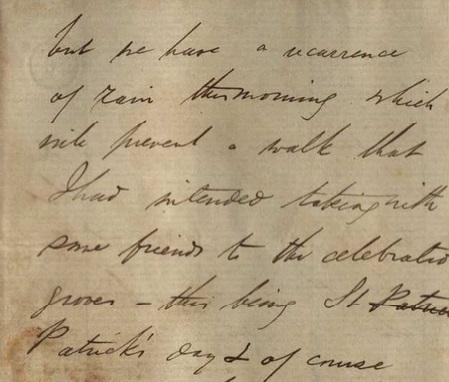 but we have a recurrence
of rain this morning which
will prevent a walk that
I had intended taking with
some friends to the celebrated
groves - this being St Patrick
Patrick's day & of course